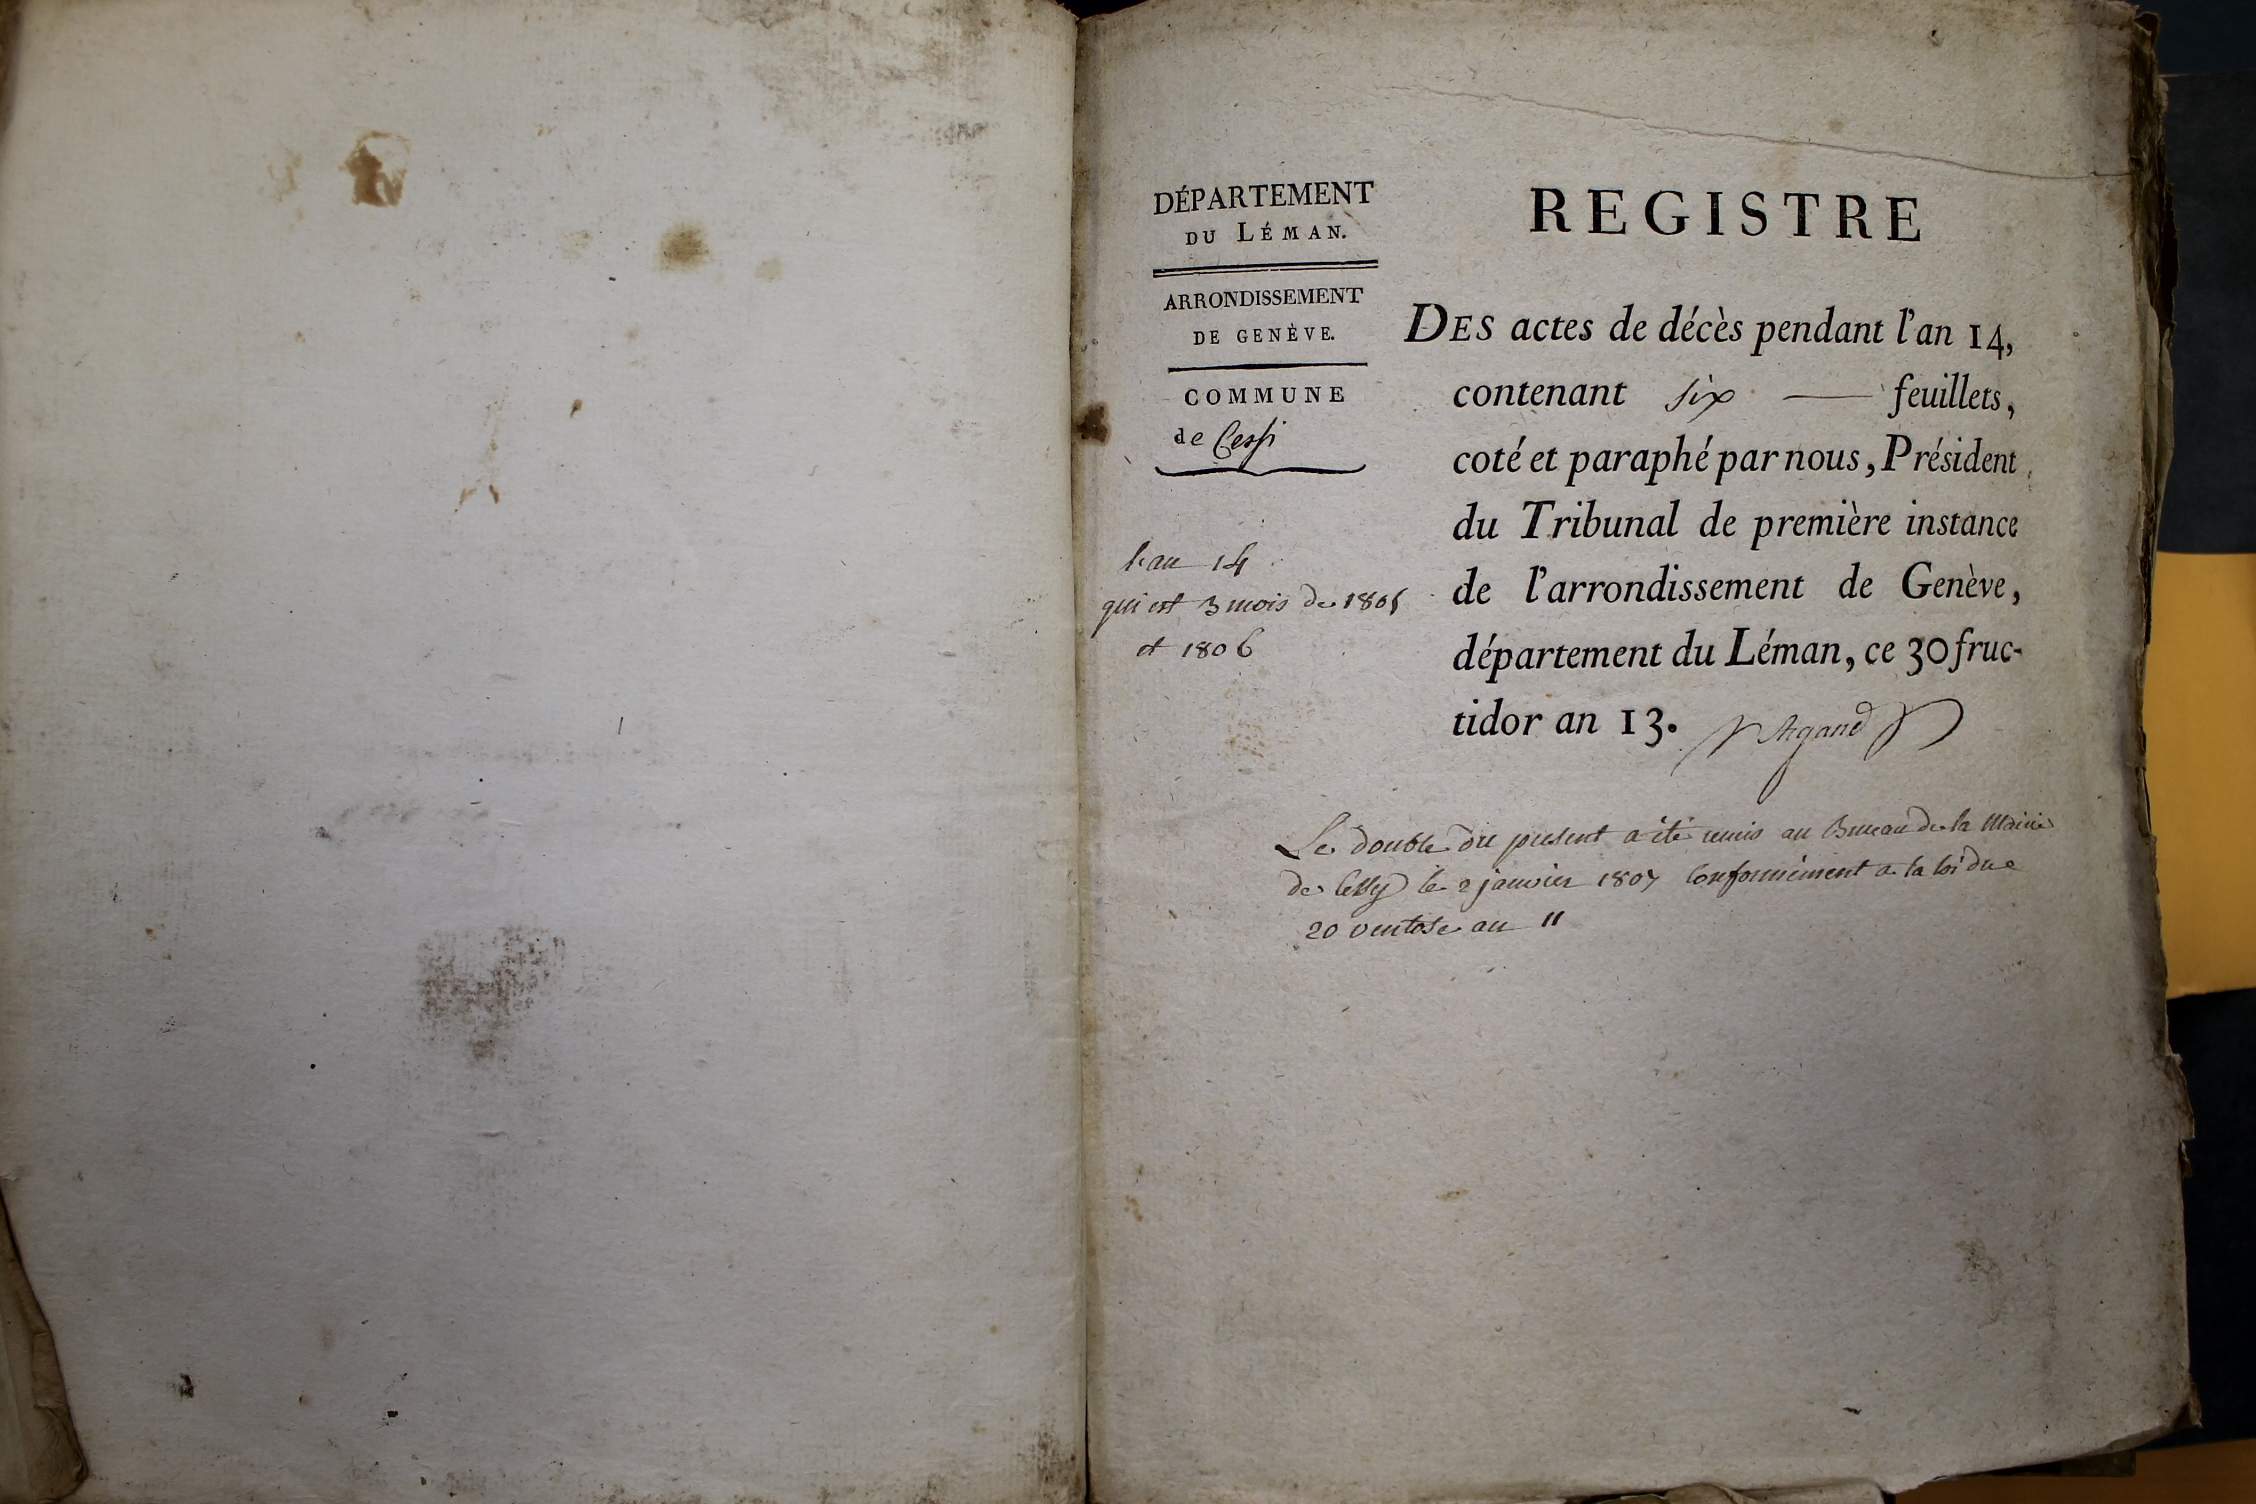 DÉPARTEMENT
DU LÉMAN.
ARRONDISSEMENT
DE GENÈVE.
COMMUNE
de Cessi
l'an 14
qui est 3 mois de 1805
et 1806
REGISTRE
DES actes de décès pendant l'an 14,
contenant six — feuillets,
coté et paraphé par nous, Président
du Tribunal de première instance
de l'arrondissement de Genève,
département du Léman, ce 30 fruc-
tidor an 13. Argand
Le double du present a été remis au Bureau de la Mairie
de Cessy le 2 janvier 1807 Conformément a la loi due
20 ventose an 11